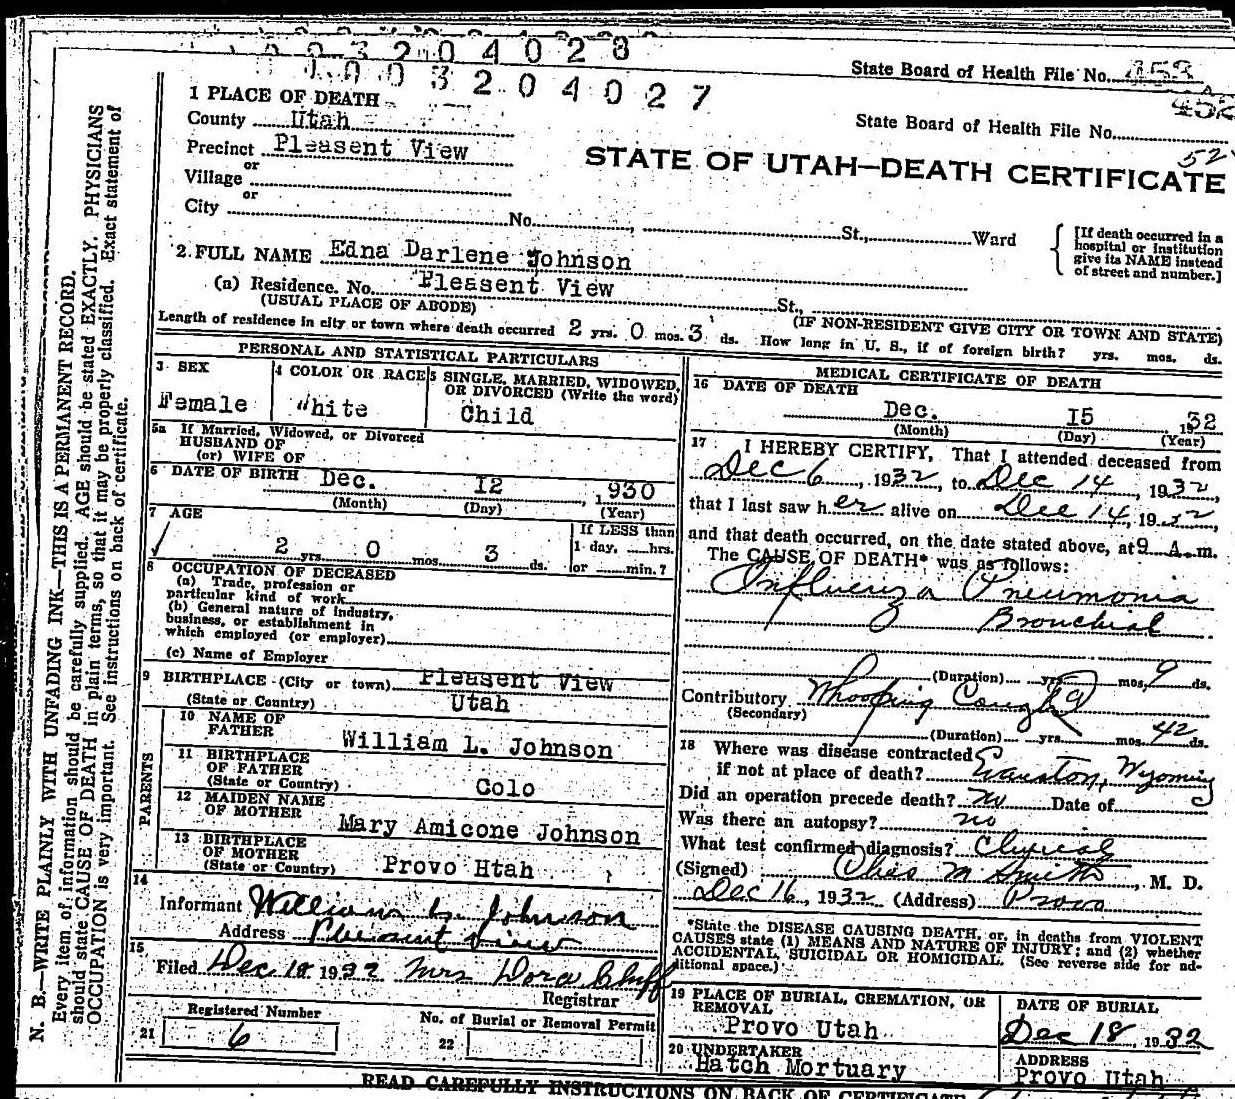 003204028
0003204027
State Board of Health File No. 453
452
State Board of Health File No.
52
STATE OF UTAH—DEATH CERTIFICATE
1 PLACE OF DEATH
County Utah
Precinct Pleasent View
or
Village
or
City No. St., Ward
[If death occurred in a
hospital or institution
give its NAME instead
of street and number.]
2. FULL NAME Edna Darlene Johnson
(a) Residence. No. Pleasent View St.,
(USUAL PLACE OF ABODE) (IF NON-RESIDENT GIVE CITY OR TOWN AND STATE)
Length of residence in city or town where death occurred 2 yrs. 0 mos. 3 ds. How long in U. S., if of foreign birth? yrs. mos. ds.
PERSONAL AND STATISTICAL PARTICULARS
3 SEX
Female
4 COLOR OR RACE
White
5 SINGLE, MARRIED, WIDOWED,
OR DIVORCED (Write the word)
Child
5a If Married, Widowed, or Divorced
HUSBAND OF
(or) WIFE OF
6 DATE OF BIRTH Dec. I2 1930
(Month) (Day) (Year)
7 AGE
2 yrs. 0 mos. 3 ds.
If LESS than
1 day, hrs.
or min.?
8 OCCUPATION OF DECEASED
(a) Trade, profession or
particular kind of work
(b) General nature of industry,
business, or establishment in
which employed (or employer)
(c) Name of Employer
9 BIRTHPLACE (City or town) Pleasent View
(State or Country) Utah
PARENTS
10 NAME OF
FATHER William L. Johnson
11 BIRTHPLACE
OF FATHER
(State or Country) Colo
12 MAIDEN NAME
OF MOTHER Mary Amicone Johnson
13 BIRTHPLACE
OF MOTHER
(State or Country) Provo Htah
14
Informant William L. Johnson
Address Pleasant View
15
Filed Dec 18 1932 Mrs Dora Cluff
Registrar
Registered Number
21 6
No. of Burial or Removal Permit
22
MEDICAL CERTIFICATE OF DEATH
16 DATE OF DEATH
Dec. I5 1932
(Month) (Day) (Year)
17 I HEREBY CERTIFY, That I attended deceased from
Dec 6, 1932, to Dec 14, 1932,
that I last saw her alive on Dec 14, 1932,
and that death occurred, on the date stated above, at 9 A. m.
The CAUSE OF DEATH* was as follows:
Influenza Pneumonia
Bronchial
(Duration) yrs. mos. 9 ds.
Contributory Whooping Cough
(Secondary)
(Duration) yrs. mos. 42 ds.
18 Where was disease contracted
if not at place of death? Evanston, Wyoming
Did an operation precede death? no Date of
Was there an autopsy? no
What test confirmed diagnosis? Clinical
(Signed) Chas M Smith, M. D.
Dec 16, 1932 (Address) Provo
*State the DISEASE CAUSING DEATH, or, in deaths from VIOLENT
CAUSES state (1) MEANS AND NATURE OF INJURY; and (2) whether
ACCIDENTAL, SUICIDAL OR HOMICIDAL. (See reverse side for ad-
ditional space.)
19 PLACE OF BURIAL, CREMATION, OR
REMOVAL
Provo Utah
DATE OF BURIAL
Dec 18, 1932
20 UNDERTAKER
Hatch Mortuary
ADDRESS
Provo Utah
READ CAREFULLY INSTRUCTIONS ON BACK OF CERTIFICATE
N. B.—WRITE PLAINLY WITH UNFADING INK—THIS IS A PERMANENT RECORD.
Every item of information should be carefully supplied. AGE should be stated EXACTLY. PHYSICIANS
should state CAUSE OF DEATH in plain terms, so that it may be properly classified. Exact statement of
OCCUPATION is very important. See instructions on back of certificate.